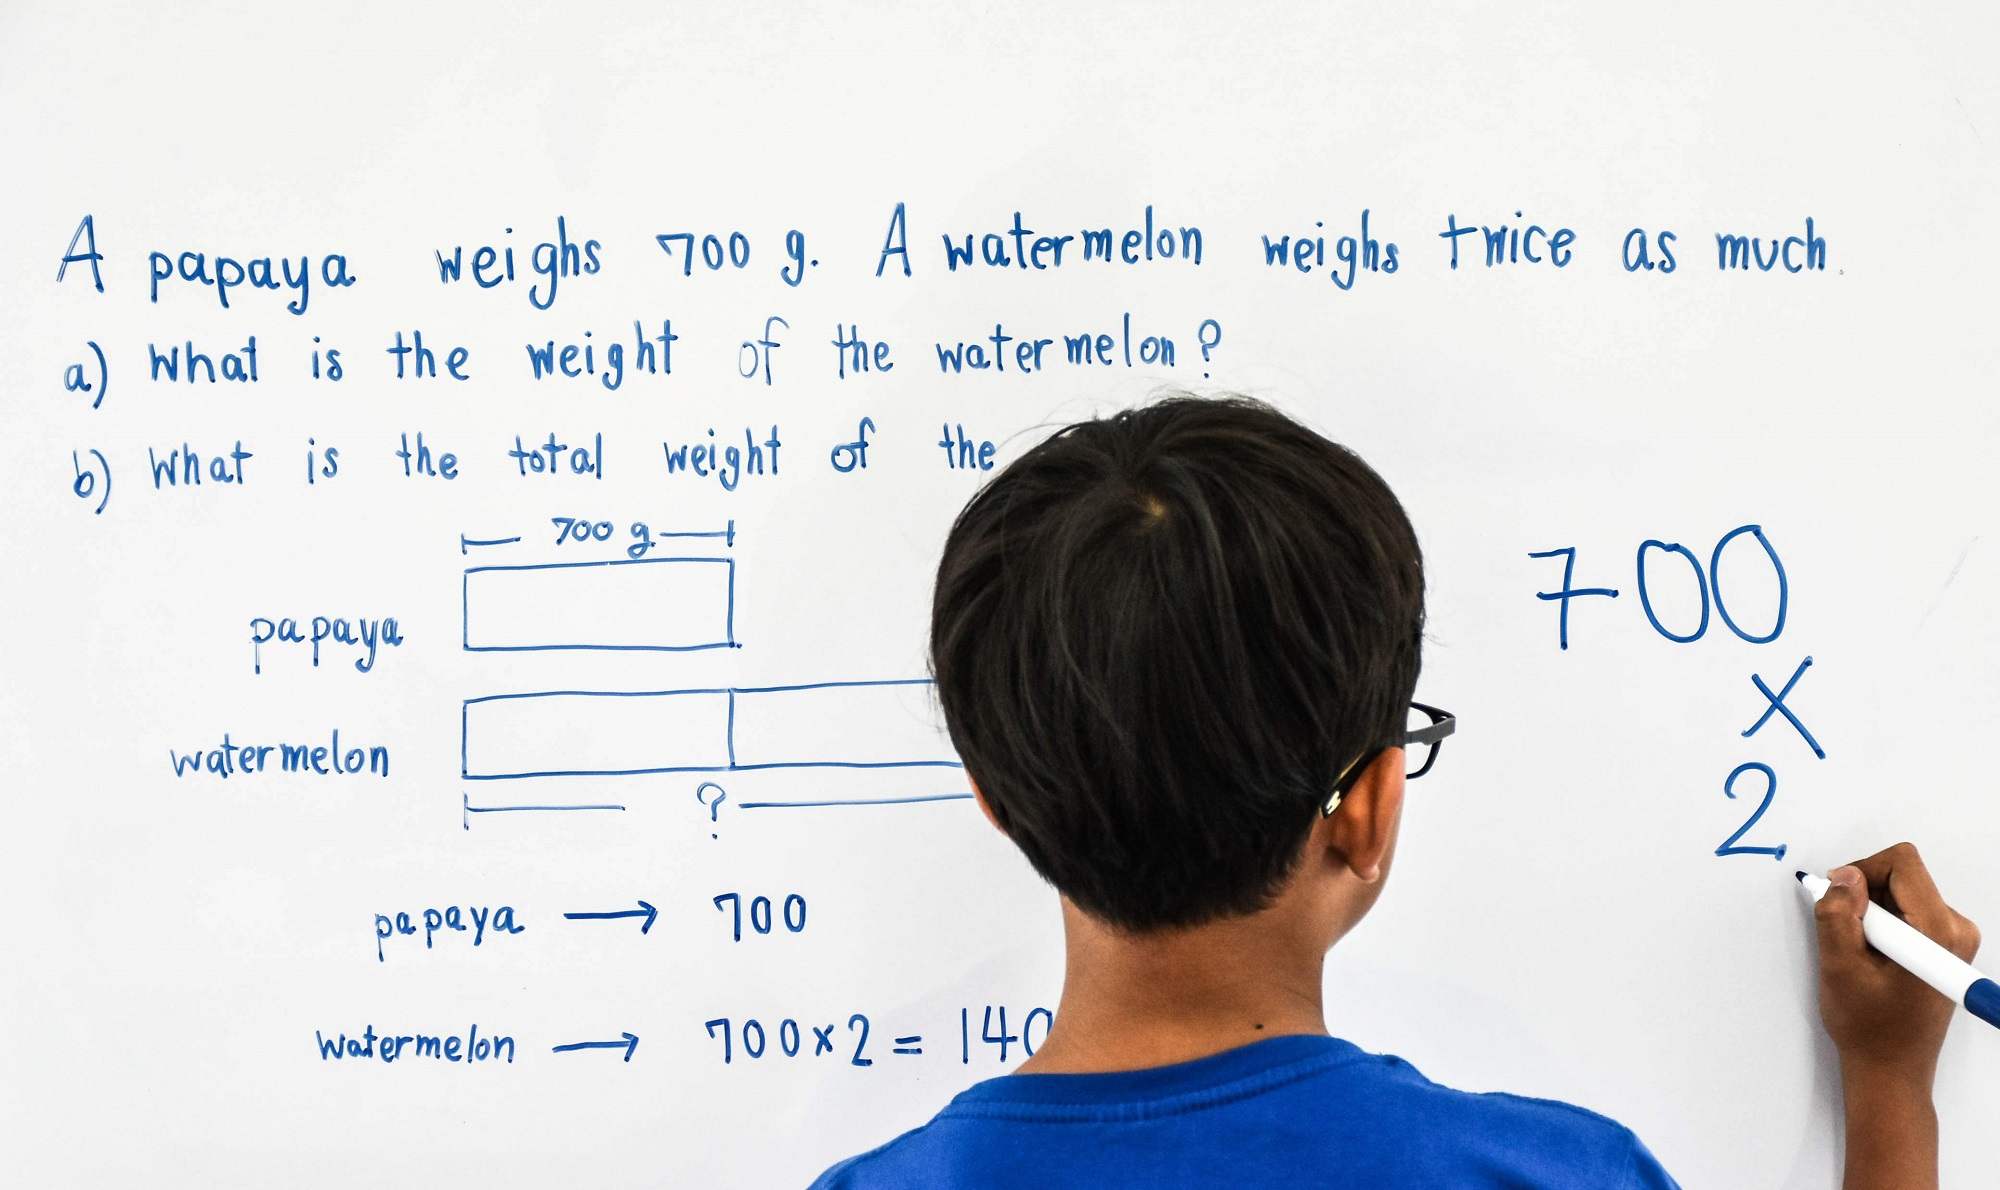 A papaya weighs 700 g. A watermelon weighs twice as much.
a) What is the weight of the watermelon?
b) What is the total weight of the
700 g
papaya
watermelon
?
papaya → 700
watermelon → 700 x 2 = 140
700
x
2